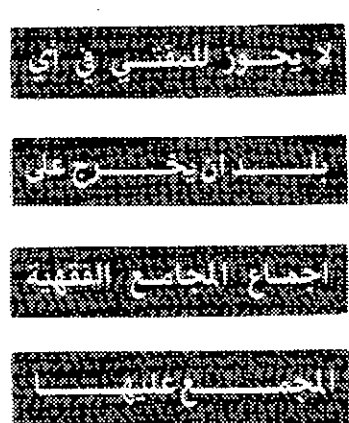 لا يجوز للمفتي في أي
بلد ان يخرج على
اجماع المجامع الفقهية
المجمع عليها